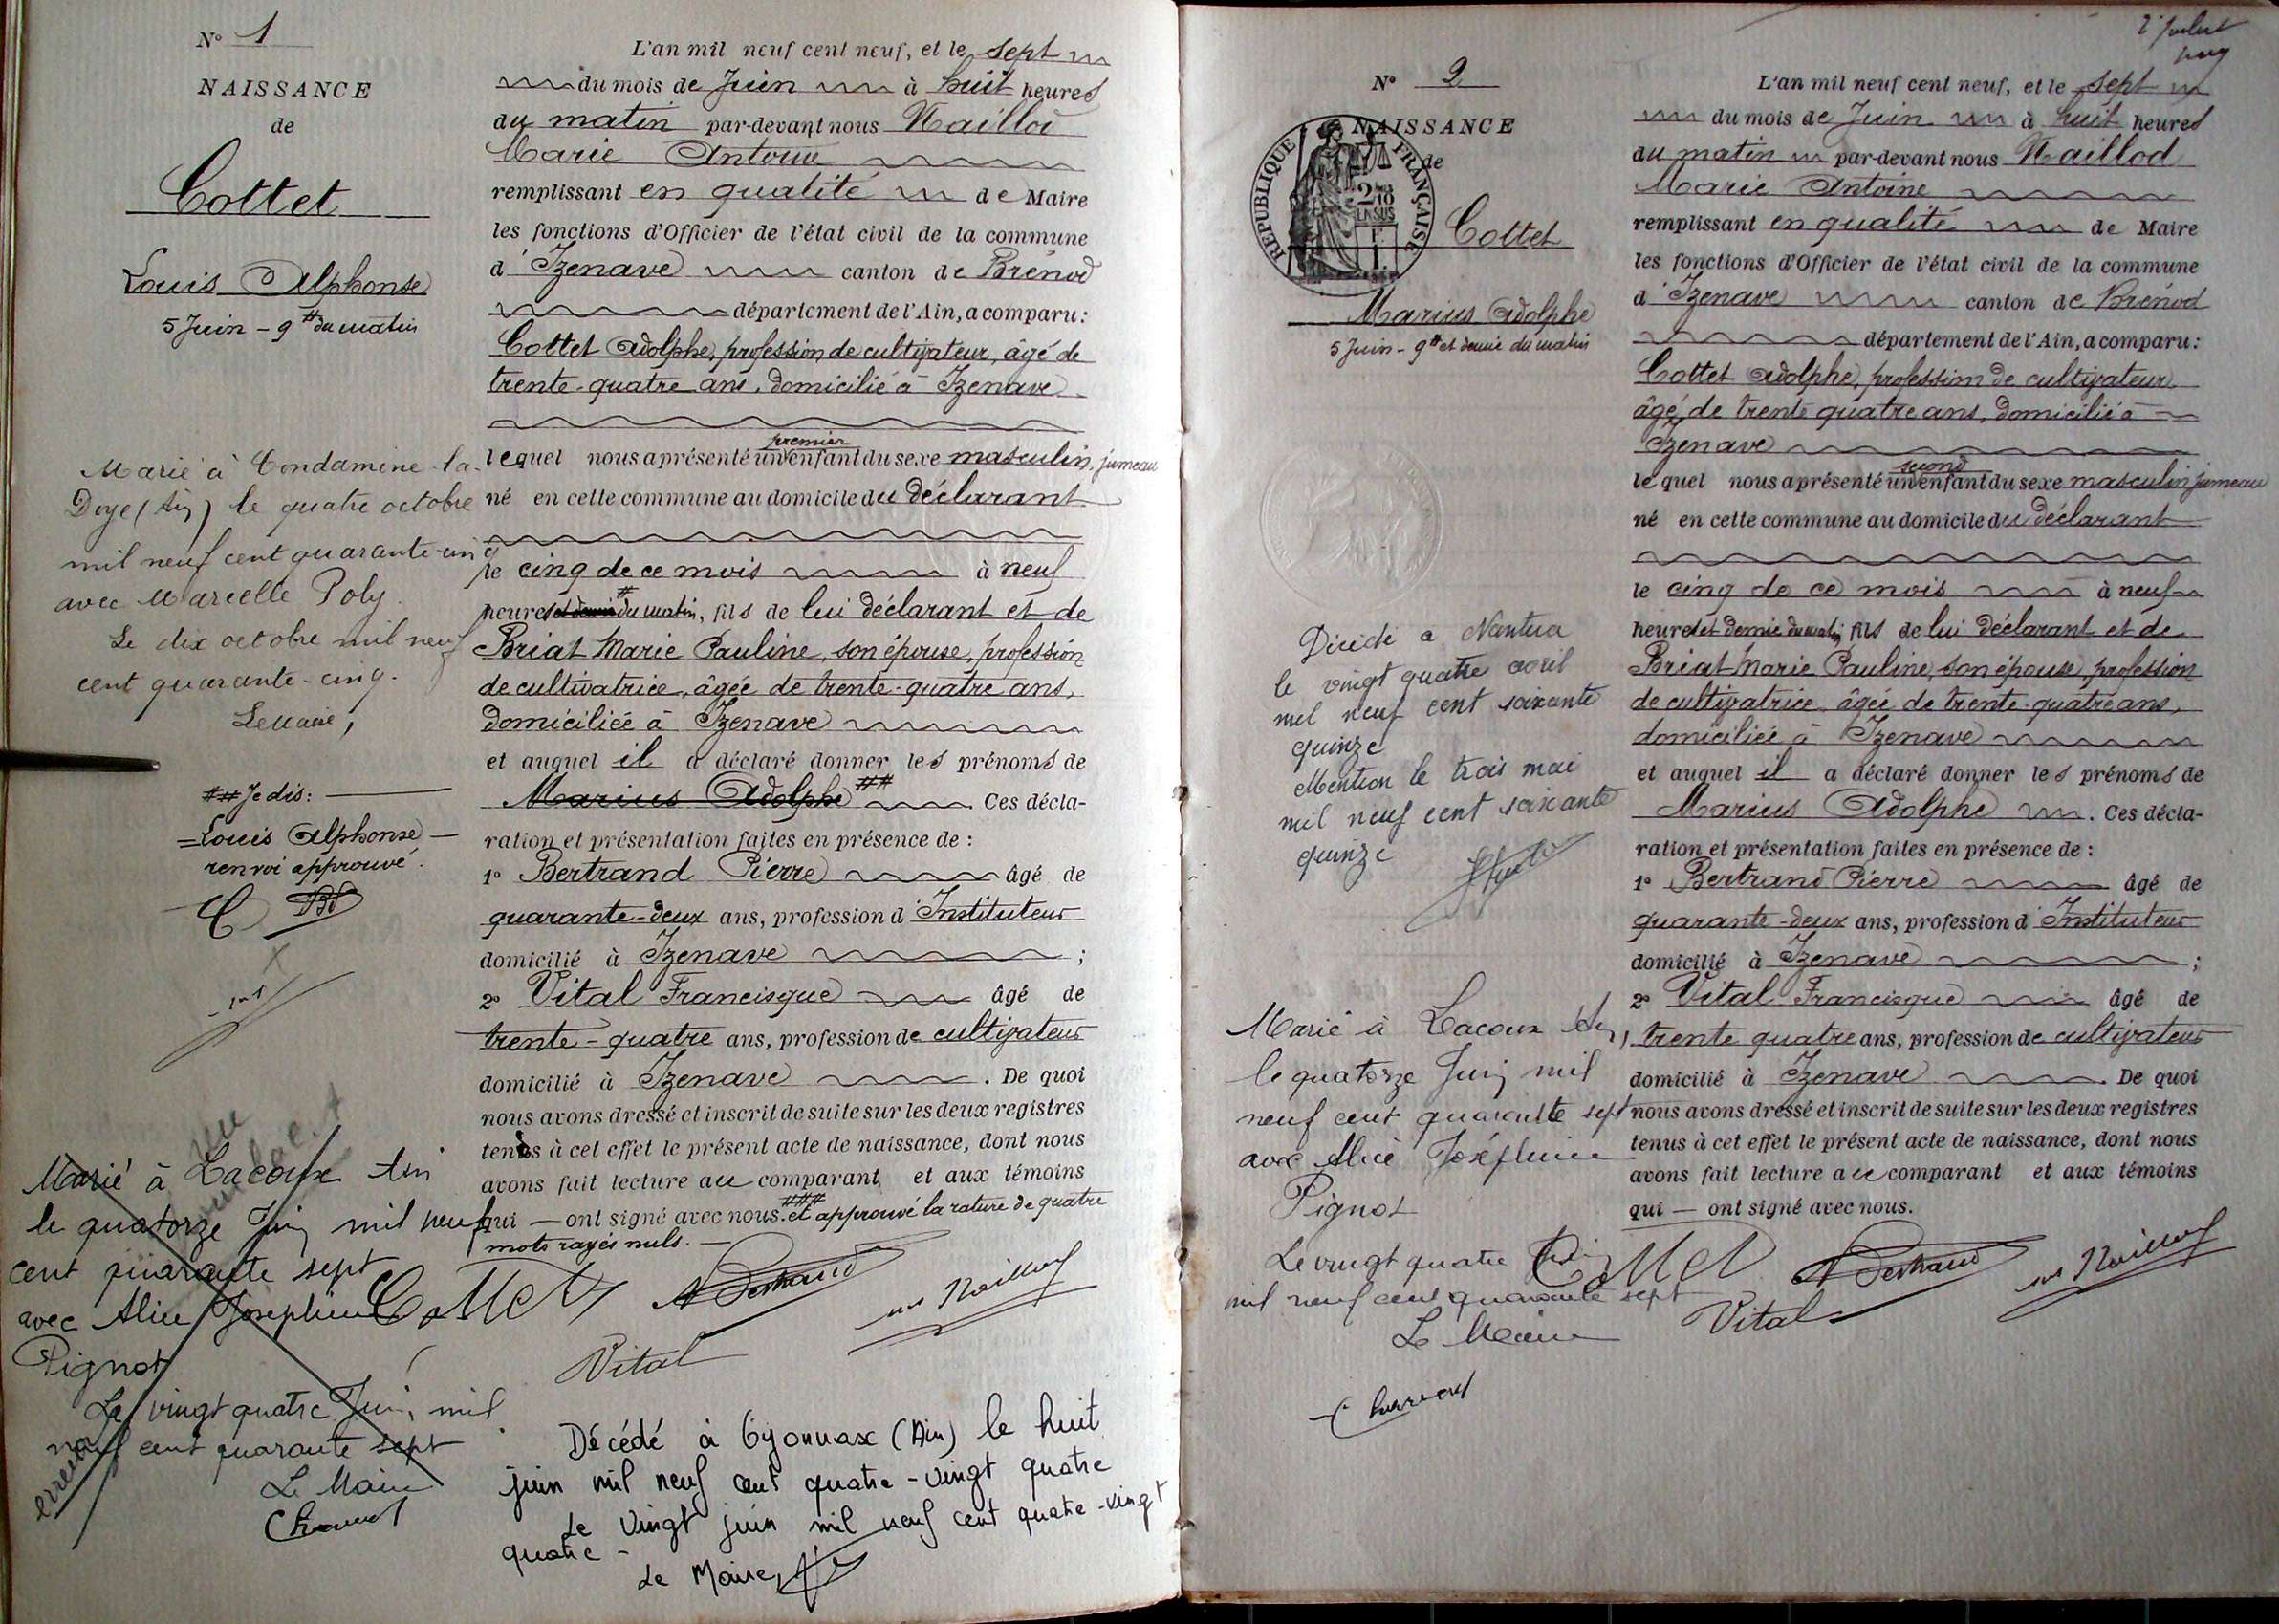 N° 1
NAISSANCE
de
Cottet
Louis Alphonse
5 Juin - 9 # du matin
Marié à Condamine-la-
Doye (Ain) le quatre octobre
mil neuf cent quarante-cinq
avec Marcelle Poly.
Le dix octobre mil neuf
cent quarante-cinq.
Le Maire,
## Je dis:
=Louis Alphonse=
renvoi approuvé.
Marié à Lacoux Ain
le quatorze Juin mil neuf
cent quarante sept
avec Alice Joséphine
Pignot
Le vingt quatre Juin mil
neuf cent quarante sept
Le Maire
erreur
L'an mil neuf cent neuf, et le sept
du mois de Juin à huit heures
du matin par-devant nous Maillod
Marie Antoine
remplissant en qualité de Maire
les fonctions d'Officier de l'état civil de la commune
d'Izenave canton de Brénod
département de l'Ain, a comparu:
Cottet Adolphe, profession de cultivateur, âgé de
trente-quatre ans, domicilié à Izenave
premier
lequel nous a présenté un enfant du sexe masculin, jumeau
né en cette commune au domicile du déclarant
le cinq de ce mois à neuf
heures et demie # du matin, fils de lui déclarant et de
Briat Marie Pauline, son épouse, profession
de cultivatrice, âgée de trente-quatre ans,
domiciliée à Izenave
et auquel il a déclaré donner les prénoms de
Marius Adolphe ## Ces décla-
ration et présentation faites en présence de :
1° Bertrand Pierre âgé de
quarante-deux ans, profession d'Instituteur
domicilié à Izenave ;
2° Vital Francisque âgé de
trente-quatre ans, profession de cultivateur
domicilié à Izenave . De quoi
nous avons dressé et inscrit de suite sur les deux registres
tenus à cet effet le présent acte de naissance, dont nous
avons fait lecture au comparant et aux témoins
qui — ont signé avec nous. ### et approuvé la rature de quatre
mots rayés nuls. —
Cottet
Bertrand
Vital
Décédé à Oyonnax (Ain) le huit
juin mil neuf cent quatre-vingt quatre
Le vingt juin mil neuf cent quatre-vingt
quatre -
Le Maire,
N° 2
NAISSANCE
de
REPUBLIQUE FRANÇAISE
Cottet
Marius Adolphe
5 Juin - 9 # et demie du matin
Décédé a Nantua
le vingt quatre avril
mil neuf cent soixante
quinze
Mention le trois mai
mil neuf cent soixante
quinze
Marié à Lacoux Ain,
le quatorze Juin mil
neuf cent quarante sept
avec Alice Joséphine
Pignot
Le vingt quatre Juin
mil neuf cent quarante sept
Le Maire
L'an mil neuf cent neuf, et le sept
du mois de Juin à huit heures
du matin par-devant nous Maillod
Marie Antoine
remplissant en qualité de Maire
les fonctions d'Officier de l'état civil de la commune
d'Izenave canton de Brénod
département de l'Ain, a comparu:
Cottet Adolphe, profession de cultivateur
âgé de trente quatre ans, domicilié à
Izenave
second
lequel nous a présenté un enfant du sexe masculin jumeau
né en cette commune au domicile du déclarant
le cinq de ce mois à neuf
heures et demie du matin fils de lui déclarant et de
Briat Marie Pauline, son épouse, profession
de cultivatrice âgée de trente-quatre ans,
domiciliée à Izenave
et auquel il a déclaré donner les prénoms de
Marius Adolphe . Ces décla-
ration et présentation faites en présence de :
1° Bertrand Pierre âgé de
quarante-deux ans, profession d'Instituteur
domicilié à Izenave ;
2° Vital Francisque âgé de
trente quatre ans, profession de cultivateur
domicilié à Izenave . De quoi
nous avons dressé et inscrit de suite sur les deux registres
tenus à cet effet le présent acte de naissance, dont nous
avons fait lecture au comparant et aux témoins
qui — ont signé avec nous.
Cottet
Bertrand
Vital